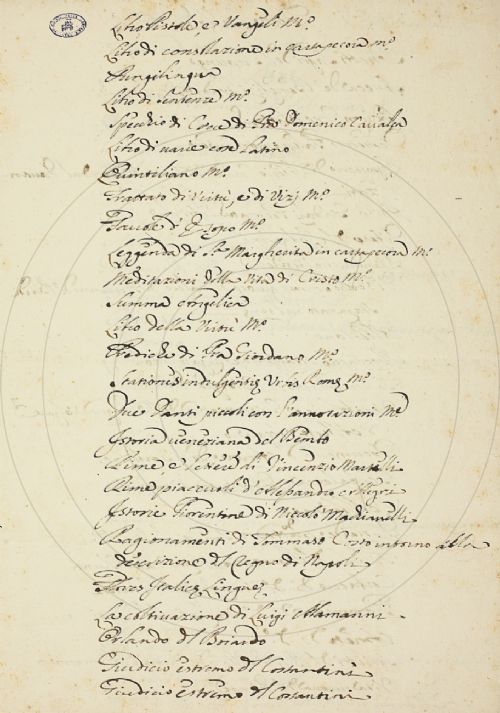 Libro Pistole, e Vangeli M.º
Libro di consolazione in cartapecora m.º
Pungilingua
Libro di Sentenze M.º
Specchio di Croce di Frà Domenico Cavalca
Libro di varie cose Latino
Quintiliano M.º
Trattato di Virtù, e di Vizj M.º
Favole d' Esopo M.º
Leggenda di S.ta Margherita in cartapecora M.º
Meditazioni della Vita di Cristo M.º
Summa Angelica
Libro della Virtù M.º
Prediche di Fra Giordano M.º
Stationes indulgentię Urbis Romę M.º
Due Danti piccoli con l'annotazioni M.º
Istoria veneziana del Bembo
Rime e Lettere di Vincenzio Martelli
Rime piacevoli d'Alessandro Allegri
Istorie Fiorentine di Niccolò Machiavelli
Ragionamenti di Tommaso Costo intorno alla
descrizione del Regno di Napoli
Flores Italicę Linguę
La coltivazione di Luigi Alamanni
Orlando del Boiardo
Giudicio estremo del Costantini
Giudicio estremo del Costantini